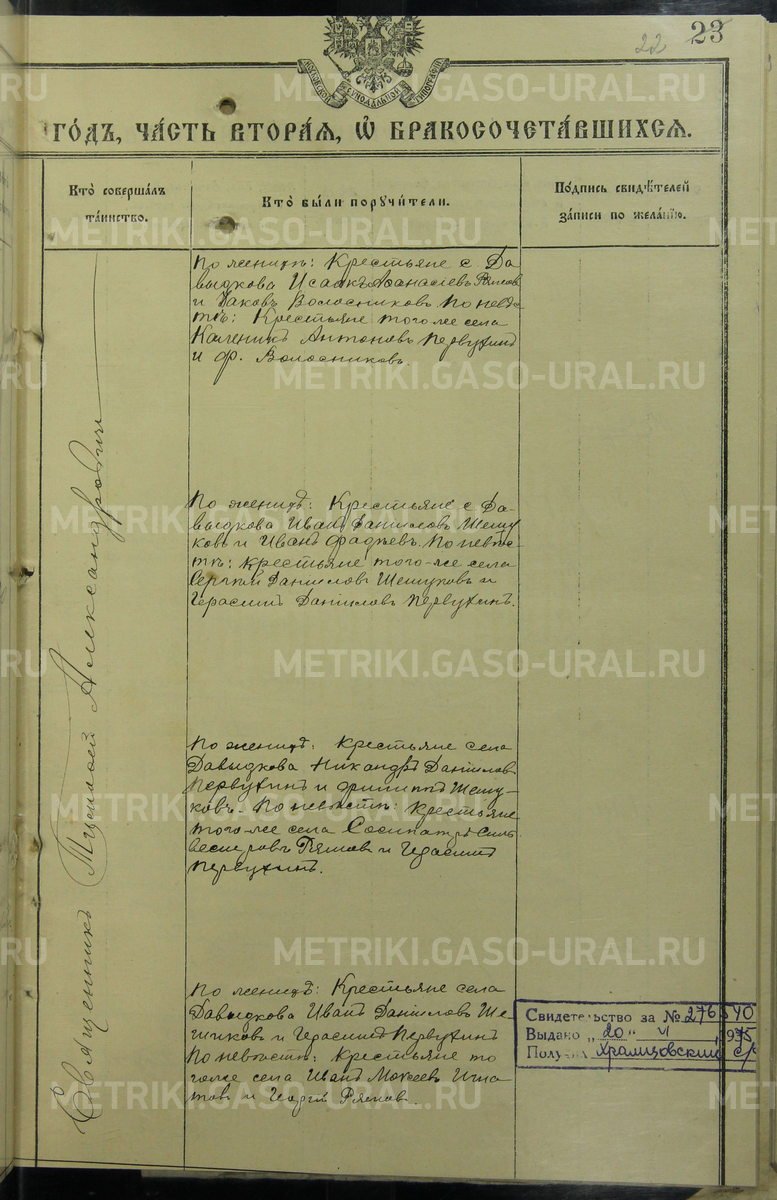 22 23
МОСКОВСКОЙ СѴНОДАЛЬНОЙ ТИПОГРАФІИ
го́дъ, ча́сть втора́ѧ, ѡ҆ бракосочета́вшихсѧ.
Кто̀ соверша́лъ
та́инство.
Кто̀ бы́ли порꙋчи́тели.
По́дпись свидѣ́телей
за́писи по жела́нїю.
Священникъ Александровъ
По женихѣ: Крестьяне с. Да
выдкова Исаакъ Афанасіевъ Рямов
и Яковъ Волосниковъ. По невѣ
стѣ: Крестьяне того-же села
Каленикъ Антоновъ Первухинъ
и Ф. Волосниковъ.
По женихѣ: Крестьяне с Да-
выдкова Иванъ Даниловъ Шешу
ковъ и Иванъ Фадѣевъ. По невѣс-
тѣ: крестьяне того-же села
Сергѣй Даниловъ Шешуковъ и
Герасимъ Даниловъ Первухинъ.
По женихѣ: Крестьяне села
Давыдкова Никандръ Даниловъ
Первухинъ и Филиппъ Шешу-
ковъ. По невѣстѣ: Крестьяне
того-же села Сосипатръ Силь
вестровъ и Герасимъ
Первухинъ.
По женихѣ: Крестьяне села
Давыдкова Иванъ Даниловъ Ше-
шуковъ и Герасимъ Первухинъ
По невѣстѣ: Крестьяне то
гоже села Иванъ Мокеевъ Игна
товъ и Георгій Рямов.
Свидетельство за № 276540
Выдано „20“ VI 1935
Получил с/с
METRIKI.GASO-URAL.RU